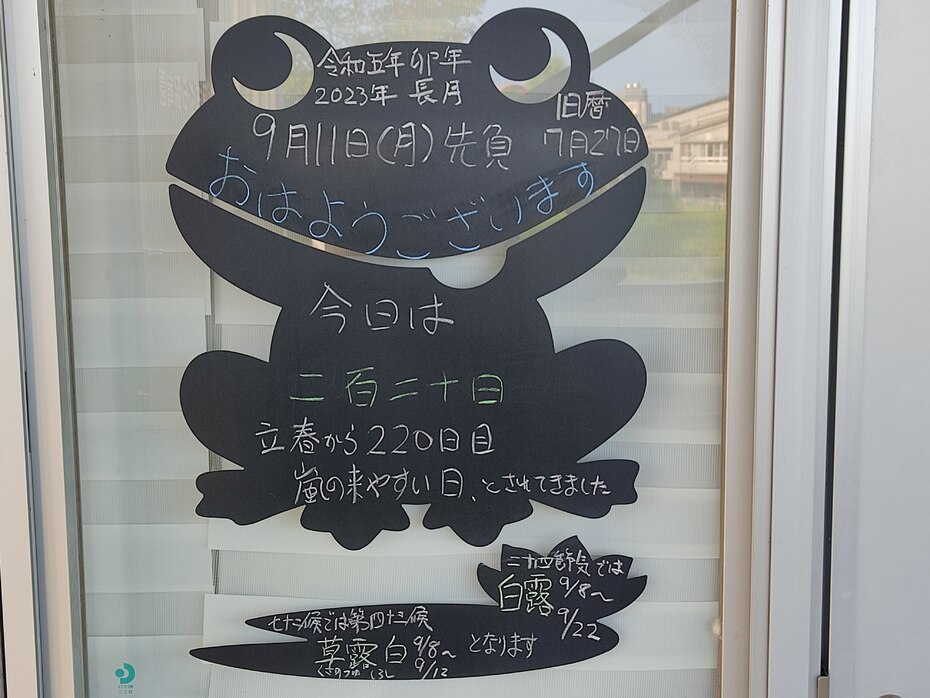 令和五年 卯年
2023年 長月
9月11日(月)先負
旧暦
7月27日
おはようございます
今日は
二百二十日
立春から220日目
嵐の来やすい日、とされてきました
二十四節気では
白露 9/8〜
9/22
七十二候では第四十三候
草露白 9/8〜
9/12
くさのつゆ しろし
となります